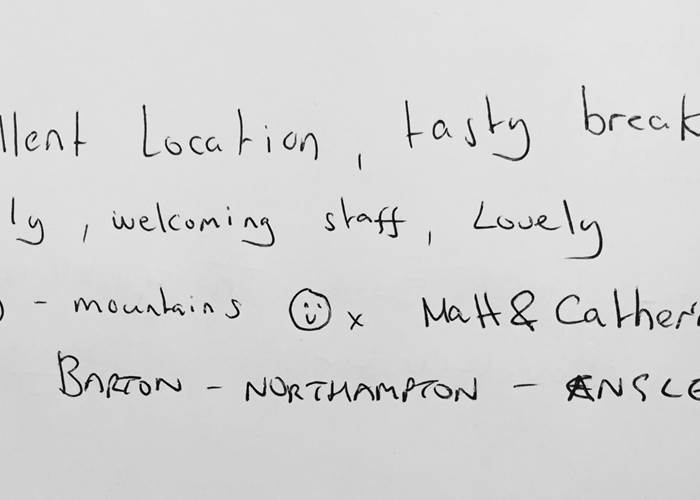 llent Location, tasty break
ly, welcoming staff, Lovely
- mountains ☺ x Matt & Cather
BARTON - NORTHAMPTON - ANSLE